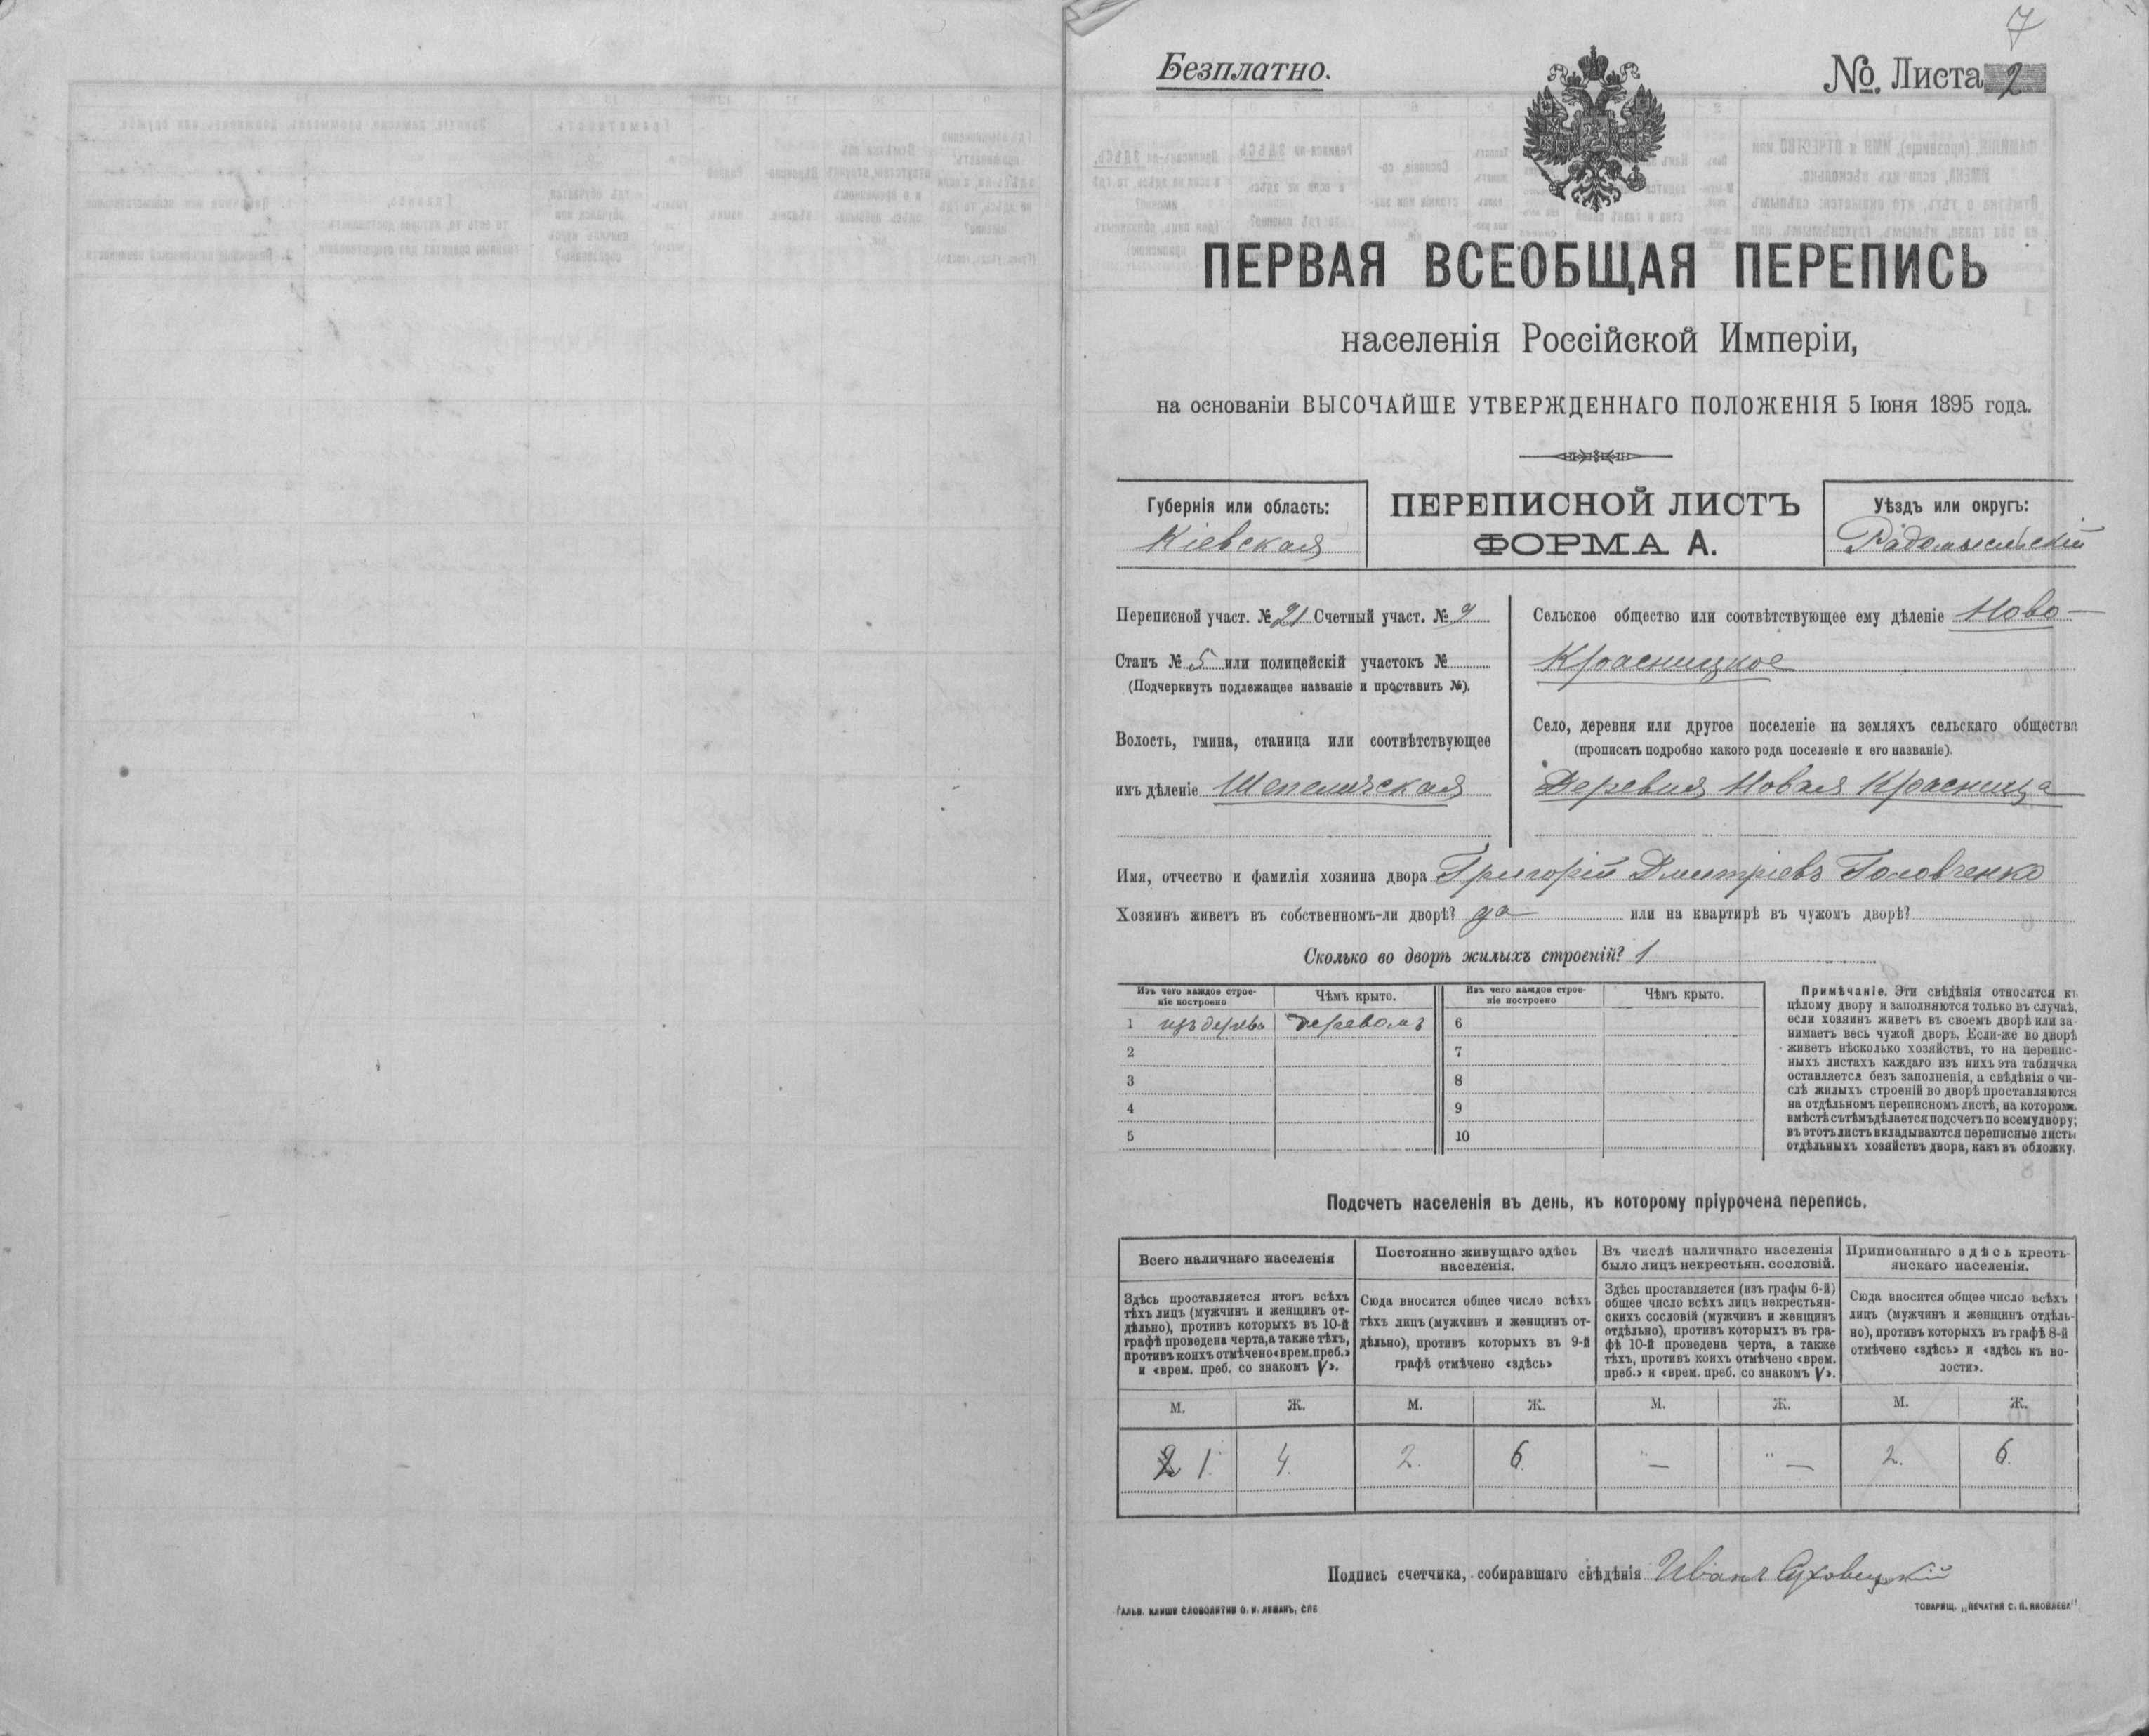 7
Безплатно.
№. Листа 2
ПЕРВАЯ ВСЕОБЩАЯ ПЕРЕПИСЬ
населенія Россійской Имперіи,
на основаніи ВЫСОЧАЙШЕ УТВЕРЖДЕННАГО ПОЛОЖЕНІЯ 5 Іюня 1895 года.
Губернія или область:
Кіевская
ПЕРЕПИСНОЙ ЛИСТЪ
ФОРМА А.
Уѣздъ или округъ:
Радомысльскій
Переписной участ. № 21 Счетный участ. № 9
Станъ № 5 или полицейскій участокъ №
(Подчеркнуть подлежащее названіе и проставить №).
Волость, гмина, станица или соотвѣтствующее
имъ дѣленіе Шепеличская
Сельское общество или соотвѣтствующее ему дѣленіе Ново-
Красницкое
Село, деревня или другое поселеніе на земляхъ сельскаго общества
(прописать подробно какого рода поселеніе и его названіе).
Деревня Новая Красница
Имя, отчество и фамилія хозяина двора Григорій Дмитріевъ Головченко
Хозяинъ живетъ въ собственномъ-ли дворѣ? да или на квартирѣ въ чужомъ дворѣ?
Сколько во дворѣ жилыхъ строеній? 1
Изъ чего каждое строе-
ніе построено
Чѣмъ крыто.
Изъ чего каждое строе-
ніе построено
Чѣмъ крыто.
1 изъ дерева деревомъ 6
2 7
3 8
4 9
5 10
Примѣчаніе. Эти свѣдѣнія относятся къ
цѣлому двору и заполняются только въ случаѣ,
если хозяинъ живетъ въ своемъ дворѣ или за-
нимаетъ весь чужой дворъ. Если-же во дворѣ
живетъ нѣсколько хозяйствъ, то на перепис-
ныхъ листахъ каждаго изъ нихъ эта табличка
оставляется безъ заполненія, а свѣдѣнія о чи-
слѣ жилыхъ строеній во дворѣ проставляются
на отдѣльномъ переписномъ листѣ, на которомъ
вмѣстѣ съ тѣмъ дѣлается подсчетъ по всему двору;
въ этотъ листъ вкладываются переписные листы
отдѣльныхъ хозяйствъ двора, какъ въ обложку.
Подсчетъ населенія въ день, къ которому пріурочена перепись.
Всего наличнаго населенія
Здѣсь проставляется итогъ всѣхъ
тѣхъ лицъ (мужчинъ и женщинъ от-
дѣльно), противъ которыхъ въ 10-й
графѣ проведена черта, а также тѣхъ,
противъ коихъ отмѣчено «врем. преб.»
и «врем. преб. со знакомъ V».
Постоянно живущаго здѣсь
населенія.
Сюда вносится общее число всѣхъ
тѣхъ лицъ (мужчинъ и женщинъ от-
дѣльно), противъ которыхъ въ 9-й
графѣ отмѣчено «здѣсь»
Въ числѣ наличнаго населенія
было лицъ некрестьян. сословій.
Здѣсь проставляется (изъ графы 6-й)
общее число всѣхъ лицъ некрестьян-
скихъ сословій (мужчинъ и женщинъ
отдѣльно), противъ которыхъ въ гра-
фѣ 10-й проведена черта, а также
тѣхъ, противъ коихъ отмѣчено «врем.
преб.» и «врем. преб. со знакомъ V».
Приписаннаго здѣсь кресть-
янскаго населенія.
Сюда вносится общее число всѣхъ
лицъ (мужчинъ и женщинъ отдѣль-
но), противъ которыхъ въ графѣ 8-й
отмѣчено «здѣсь» и «здѣсь къ во-
лости».
М. Ж. М. Ж. М. Ж. М. Ж.
2 1. 4. 2. 6. " — " — 2. 6.
Подпись счетчика, собиравшаго свѣдѣнія Иванъ Суховецкій
ГАЛЬВ. КЛИШЕ СЛОВОЛИТНИ О. И. ЛЕМАНЪ, СПБ
ТОВАРИЩ. „ПЕЧАТНЯ С. П. ЯКОВЛЕВА"